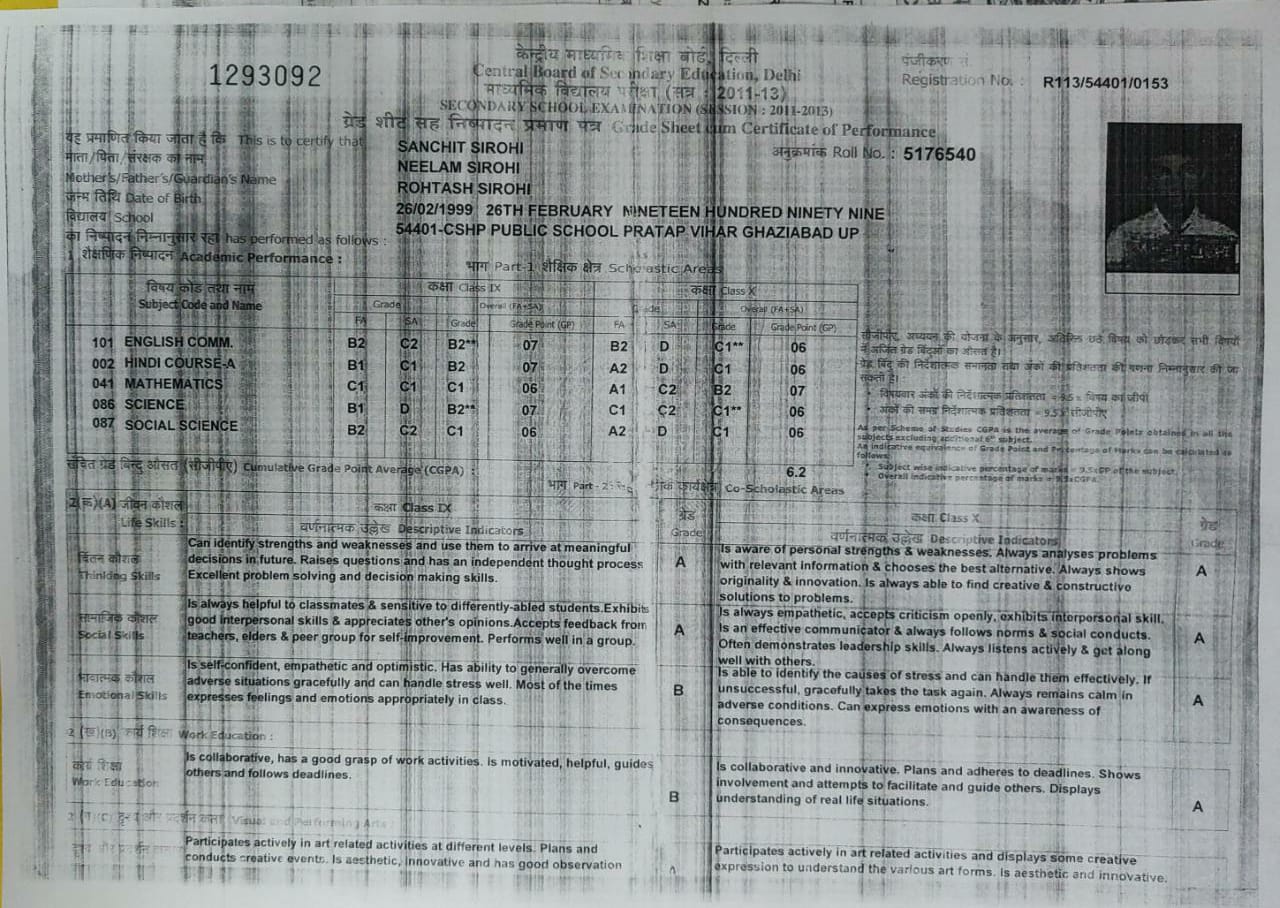 1293092
केन्द्रीय माध्यमिक शिक्षा बोर्ड, दिल्ली
Central Board of Secondary Education, Delhi
माध्यमिक विद्यालय परीक्षा (सत्र : 2011-13)
SECONDARY SCHOOL EXAMINATION (SESSION : 2011-2013)
पंजीकरण सं.
Registration No. : R113/54401/0153
ग्रेड शीट सह निष्पादन प्रमाण पत्र Grade Sheet cum Certificate of Performance
यह प्रमाणित किया जाता है कि This is to certify that SANCHIT SIROHI
अनुक्रमांक Roll No. : 5176540
माता/पिता/संरक्षक का नाम NEELAM SIROHI
Mother's/Father's/Guardian's Name ROHTASH SIROHI
जन्म तिथि Date of Birth 26/02/1999 26TH FEBRUARY NINETEEN HUNDRED NINETY NINE
विद्यालय School 54401-CSHP PUBLIC SCHOOL PRATAP VIHAR GHAZIABAD UP
का निष्पादन निम्नानुसार रहा has performed as follows :
1 शैक्षणिक निष्पादन Academic Performance :
भाग Part-1 शैक्षिक क्षेत्र Scholastic Areas
विषय कोड तथा नाम कक्षा Class IX कक्षा Class X
Subject Code and Name Grade Overall (FA+SA) Grade Overall (FA+SA)
FA SA Grade Grade Point (GP) FA SA Grade Grade Point (GP)
101 ENGLISH COMM. B2 C2 B2** 07 B2 D C1** 06
002 HINDI COURSE-A B1 C1 B2 07 A2 D C1 06
041 MATHEMATICS C1 C1 C1 06 A1 C2 B2 07
086 SCIENCE B1 D B2** 07 C1 C2 C1** 06
087 SOCIAL SCIENCE B2 C2 C1 06 A2 D C1 06
सीजीपीए, अध्ययन की योजना के अनुसार, अतिरिक्त छठे विषय को छोड़कर सभी विषयों
में अर्जित ग्रेड बिंदुओं का औसत है।
ग्रेड बिंदु की निर्देशात्मक समानता तथा अंकों की प्रतिशतता की गणना निम्नानुसार की जा
सकती है।
• विषयवार अंकों की निर्देशात्मक प्रतिशतता = 9.5 x विषय का जीपी
• अंकों की समग्र निर्देशात्मक प्रतिशतता = 9.5 x सीजीपीए
As per Scheme of Studies CGPA is the average of Grade Points obtained in all the
subjects excluding additional 6th subject.
An indicative equivalence of Grade Point and Percentage of Marks can be calculated as
follows:
• Subject wise indicative percentage of marks = 9.5xGP of the subject.
• Overall indicative percentage of marks = 9.5xCGPA.
संचित ग्रेड बिन्दु औसत (सीजीपीए) Cumulative Grade Point Average (CGPA) : 6.2
भाग Part - 2 कार्यक्षेत्र Co-Scholastic Areas
2(क)(A) जीवन कौशल कक्षा Class IX ग्रेड कक्षा Class X ग्रेड
Life Skills : वर्णनात्मक उल्लेख Descriptive Indicators Grade वर्णनात्मक उल्लेख Descriptive Indicators Grade
चिंतन कौशल
Thinking Skills
Can identify strengths and weaknesses and use them to arrive at meaningful
decisions in future. Raises questions and has an independent thought process
Excellent problem solving and decision making skills.
A
Is aware of personal strengths & weaknesses. Always analyses problems
with relevant information & chooses the best alternative. Always shows
originality & innovation. Is always able to find creative & constructive
solutions to problems.
A
सामाजिक कौशल
Social Skills
Is always helpful to classmates & sensitive to differently-abled students.Exhibits
good interpersonal skills & appreciates other's opinions.Accepts feedback from
teachers, elders & peer group for self-improvement. Performs well in a group.
A
Is always empathetic, accepts criticism openly, exhibits interpersonal skill.
Is an effective communicator & always follows norms & social conducts.
Often demonstrates leadership skills. Always listens actively & get along
well with others.
A
भावात्मक कौशल
Emotional Skills
Is self-confident, empathetic and optimistic. Has ability to generally overcome
adverse situations gracefully and can handle stress well. Most of the times
expresses feelings and emotions appropriately in class.
B
Is able to identify the causes of stress and can handle them effectively. If
unsuccessful, gracefully takes the task again. Always remains calm in
adverse conditions. Can express emotions with an awareness of
consequences.
A
2 (ख)(B) कार्य शिक्षा Work Education :
कार्य शिक्षा
Work Education
Is collaborative, has a good grasp of work activities. Is motivated, helpful, guides
others and follows deadlines.
B
Is collaborative and innovative. Plans and adheres to deadlines. Shows
involvement and attempts to facilitate and guide others. Displays
understanding of real life situations.
A
2 (ग)(C) दृश्य और प्रदर्शन कला (Visual and Performing Arts) :
दृश्य और प्रदर्शन कला
Participates actively in art related activities at different levels. Plans and
conducts creative events. Is aesthetic, innovative and has good observation
A
Participates actively in art related activities and displays some creative
expression to understand the various art forms. Is aesthetic and innovative.